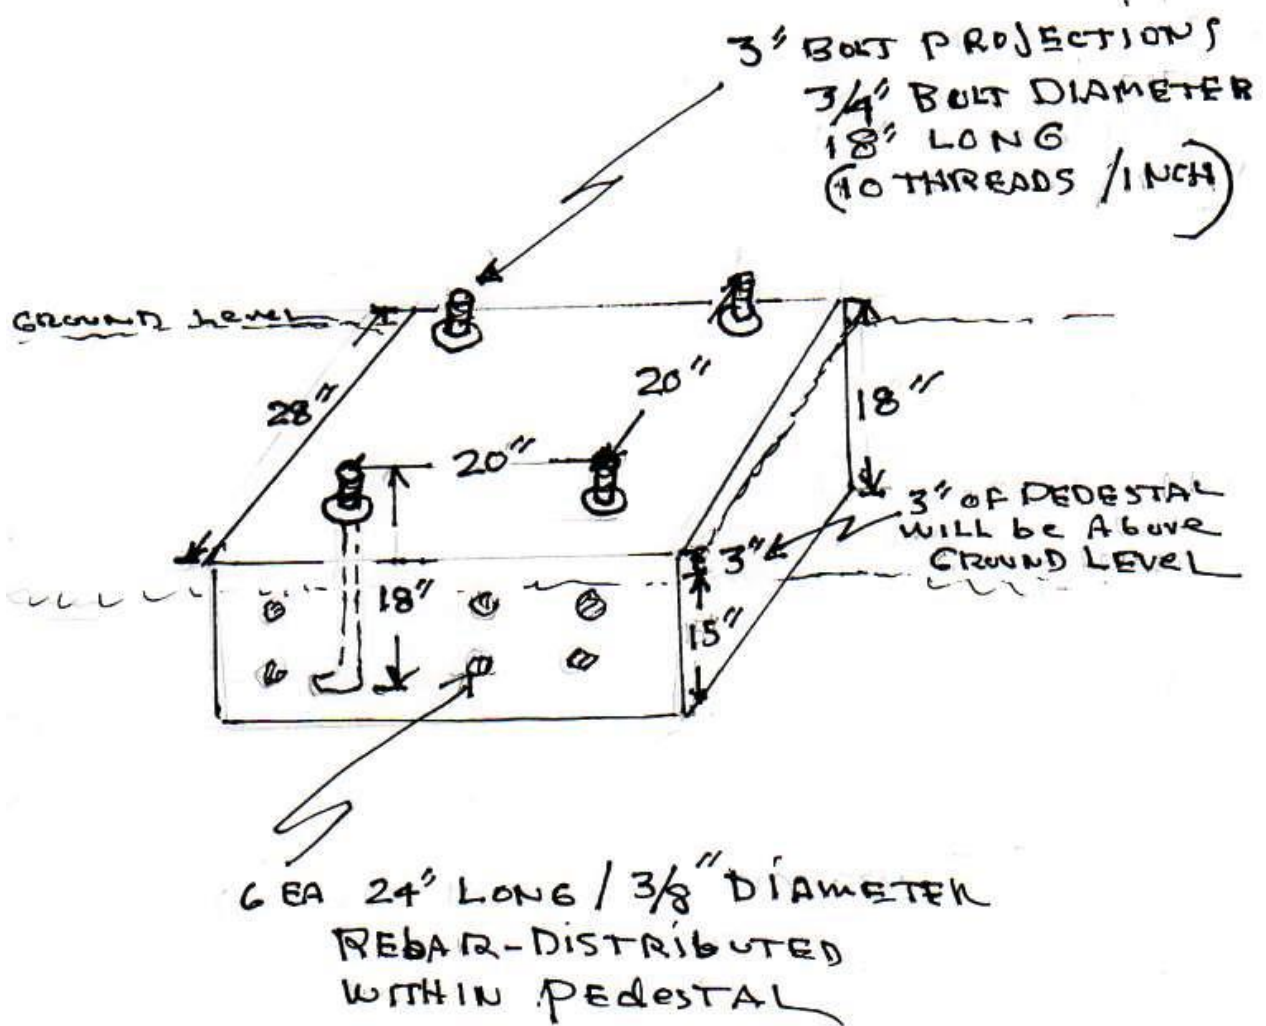 3" BOLT PROJECTIONS
3/4" BOLT DIAMETER
18" LONG
(10 THREADS / INCH)
GROUND LEVEL
28"
20"
20"
18"
3" OF PEDESTAL
WILL be Above
GROUND LEVEL
3"
18"
15"
6 EA 24" LONG / 3/8" DIAMETER
REbAR-DISTRIbUTED
WITHIN PEdeSTAL